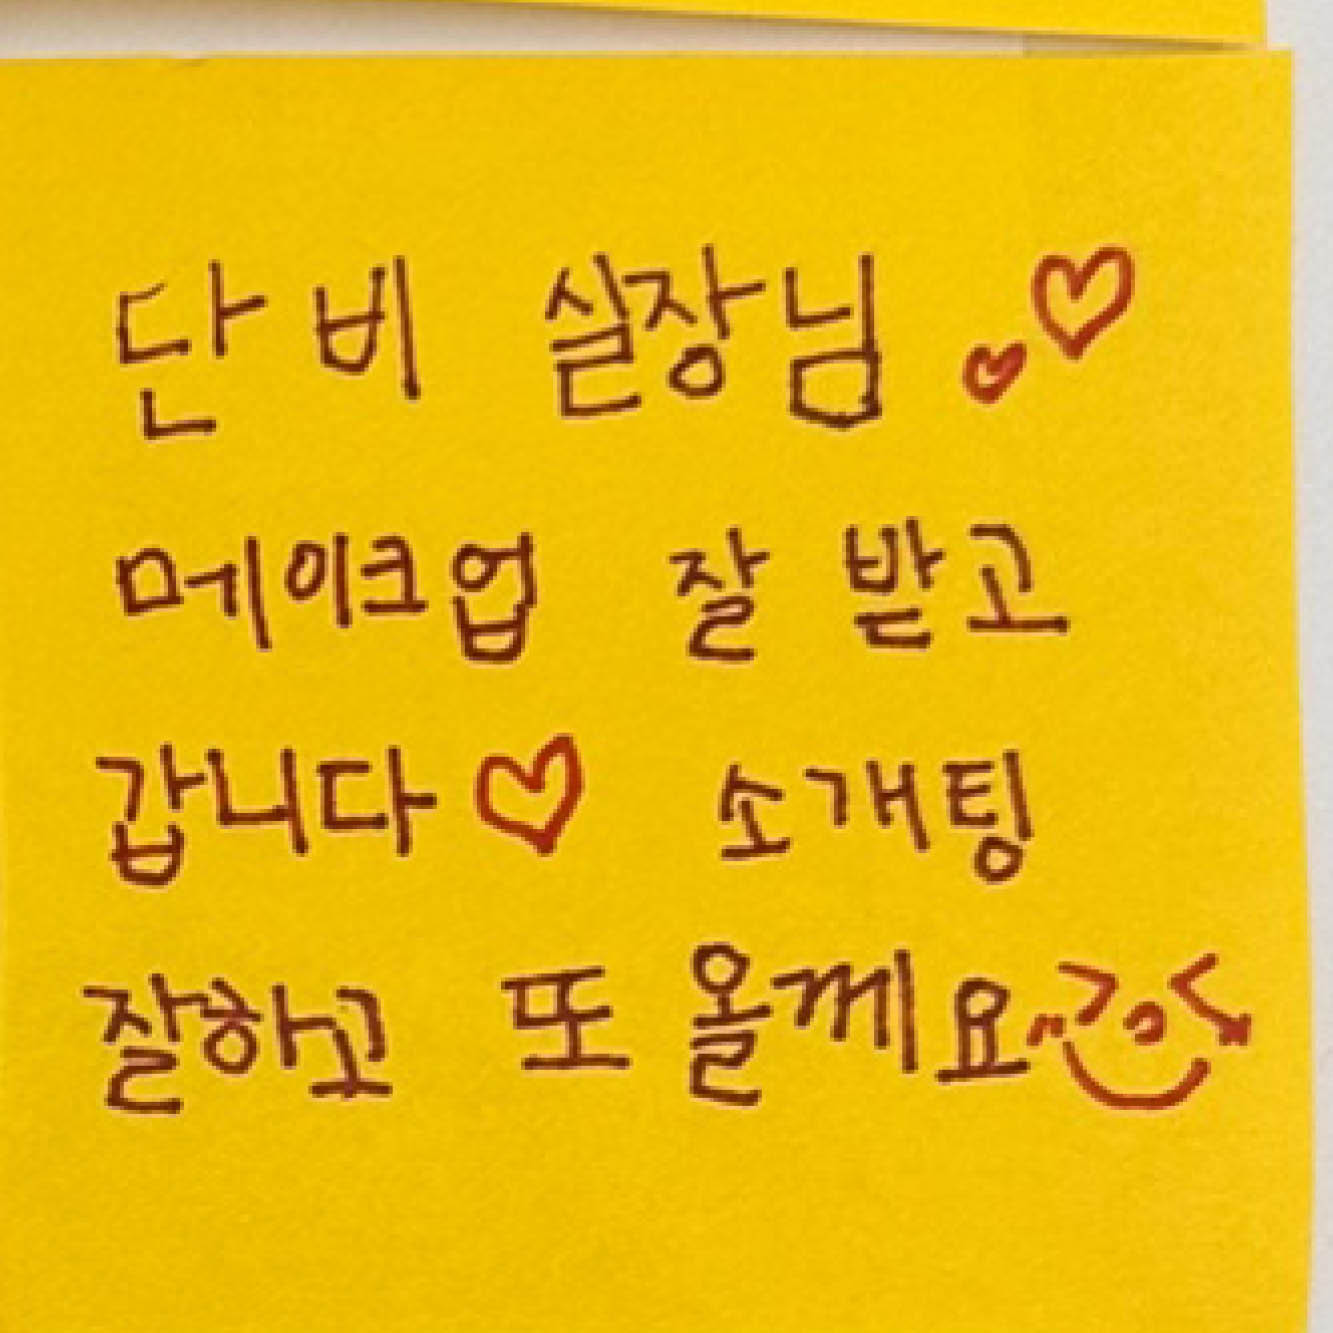 단비 실장님 ♡♡
메이크업 잘 받고
갑니다♡ 소개팅
잘하고 또 올께요